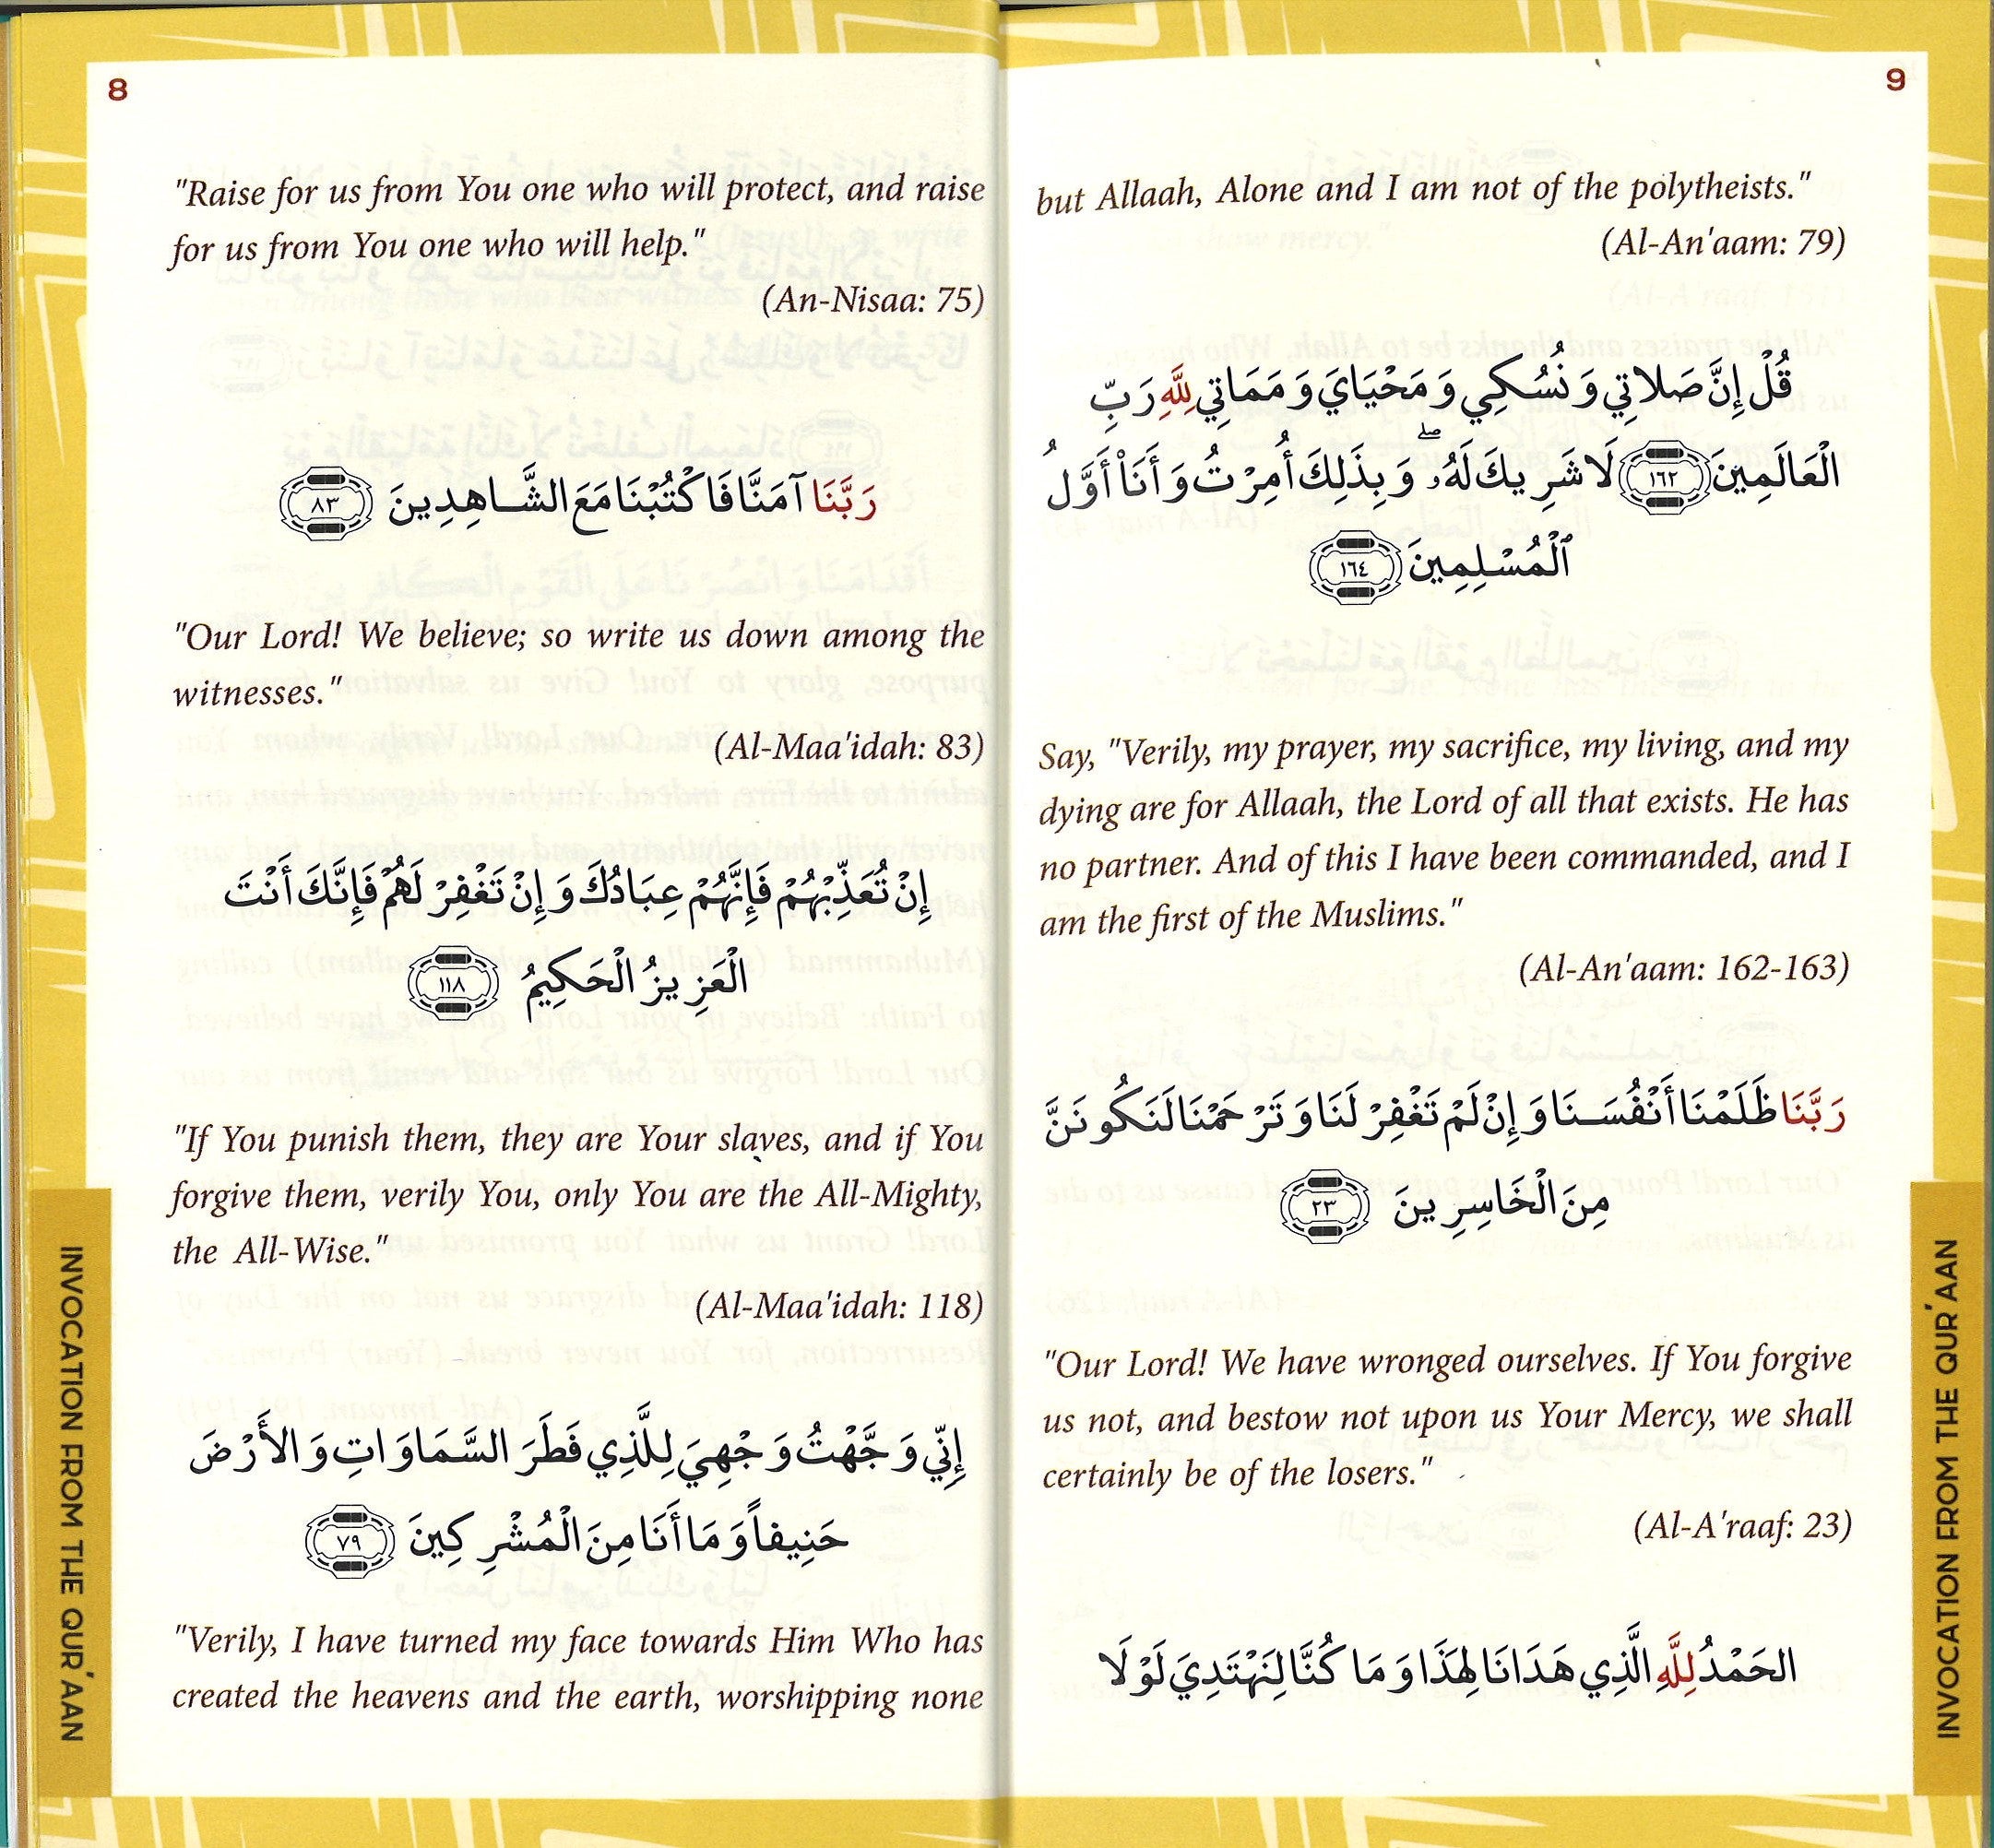 8
"Raise for us from You one who will protect, and raise
for us from You one who will help."
(An-Nisaa: 75)
رَبَّنَا آمَنَّا فَاكْتُبْنَا مَعَ الشَّاهِدِينَ ٨٣
"Our Lord! We believe; so write us down among the
witnesses."
(Al-Maa'idah: 83)
إِنْ تُعَذِّبْهُمْ فَإِنَّهُمْ عِبَادُكَ وَإِنْ تَغْفِرْ لَهُمْ فَإِنَّكَ أَنْتَ
الْعَزِيزُ الْحَكِيمُ ١١٨
"If You punish them, they are Your slaves, and if You
forgive them, verily You, only You are the All-Mighty,
the All-Wise."
(Al-Maa'idah: 118)
إِنِّي وَجَّهْتُ وَجْهِيَ لِلَّذِي فَطَرَ السَّمَاوَاتِ وَالأَرْضَ
حَنِيفاً وَمَا أَنَا مِنَ الْمُشْرِكِينَ ٧٩
"Verily, I have turned my face towards Him Who has
created the heavens and the earth, worshipping none
INVOCATION FROM THE QUR'AAN
9
but Allaah, Alone and I am not of the polytheists."
(Al-An'aam: 79)
قُلْ إِنَّ صَلاتِي وَنُسُكِي وَمَحْيَايَ وَمَمَاتِي لِلَّهِ رَبِّ
الْعَالَمِينَ ١٦٢ لَا شَرِيكَ لَهُۥ ۖ وَبِذَلِكَ أُمِرْتُ وَأَنَا۠ أَوَّلُ
ٱلْمُسْلِمِينَ ١٦٤
Say, "Verily, my prayer, my sacrifice, my living, and my
dying are for Allaah, the Lord of all that exists. He has
no partner. And of this I have been commanded, and I
am the first of the Muslims."
(Al-An'aam: 162-163)
رَبَّنَا ظَلَمْنَا أَنْفُسَنَا وَإِنْ لَمْ تَغْفِرْ لَنَا وَتَرْحَمْنَا لَنَكُونَنَّ
مِنَ الْخَاسِرِينَ ٢٣
"Our Lord! We have wronged ourselves. If You forgive
us not, and bestow not upon us Your Mercy, we shall
certainly be of the losers."
(Al-A'raaf: 23)
الحَمْدُ لِلَّهِ الَّذِي هَدَانَا لِهَذَا وَمَا كُنَّا لِنَهْتَدِيَ لَوْلَا
INVOCATION FROM THE QUR'AAN